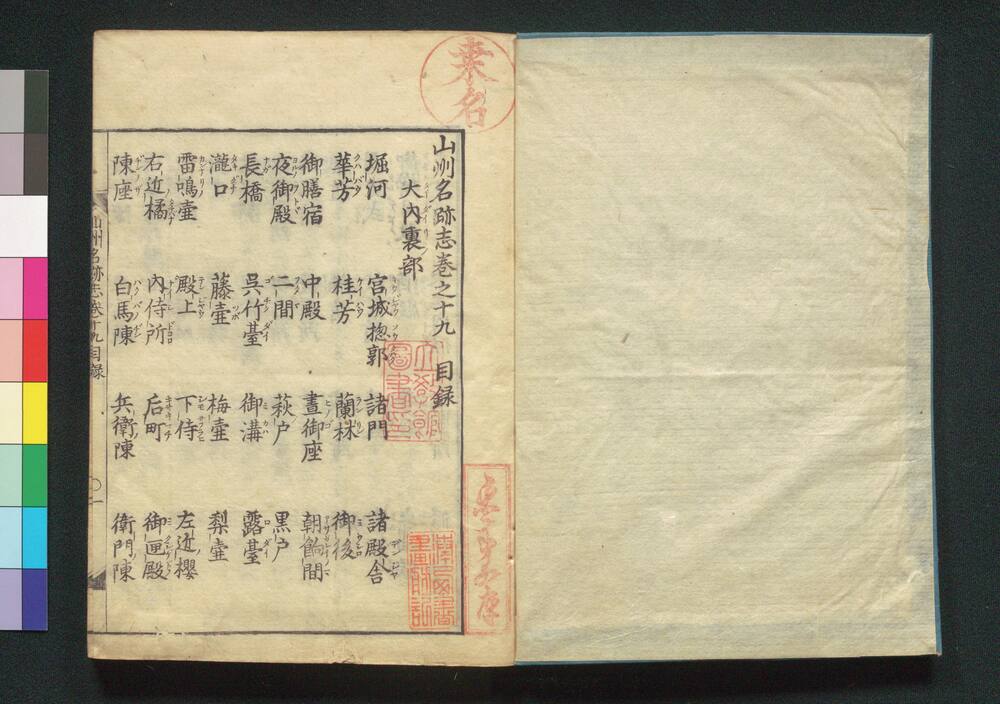 桒名
山州名跡志卷之十九　目録
大内裏部
堀河　宮城揔郭　諸門　諸殿舎
華芳　桂芳　蘭林　御後
御膳宿　中殿　晝御座　朝餉間
夜御殿　二間　萩戸　黒戸
長橋　呉竹臺　御溝　露臺
瀧口　藤壷　梅壷　梨壷
雷鳴壷　殿上　下侍　左近櫻
右近橘　内侍所　后町　御匣殿
陳座　白馬陳　兵衛陳　衛門陳
山州名跡志卷十九目録　〇一
立教館
圖書印